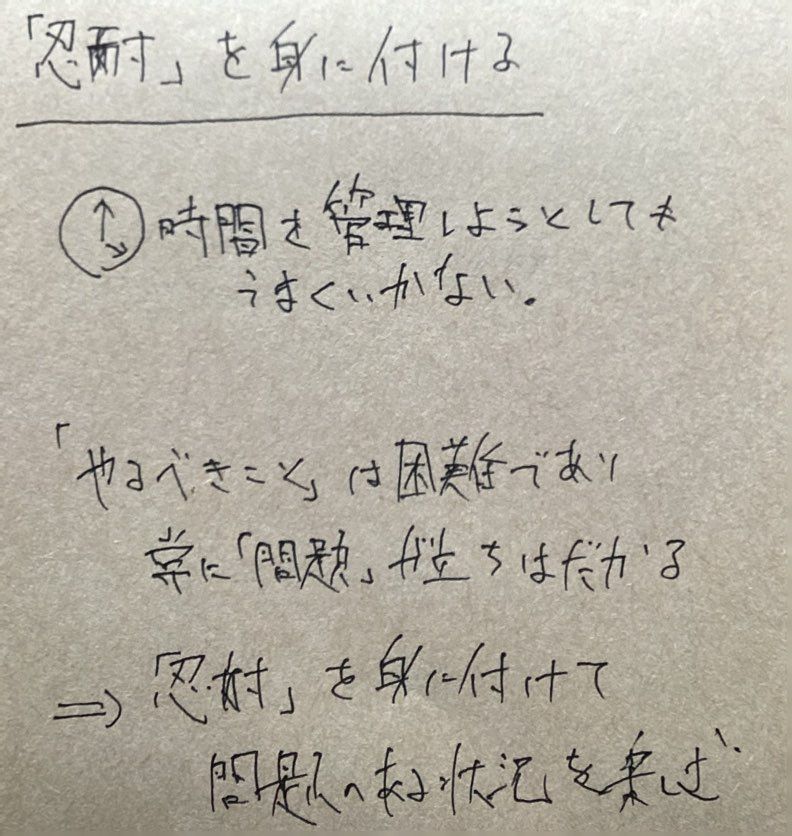 「忍耐」を身に付ける
時間を管理しようとしても
うまくいかない。
「やるべきこと」は困難であり
常に「問題」が立ちはだかる
⇒「忍耐」を身に付けて
問題のある状況を楽しむ